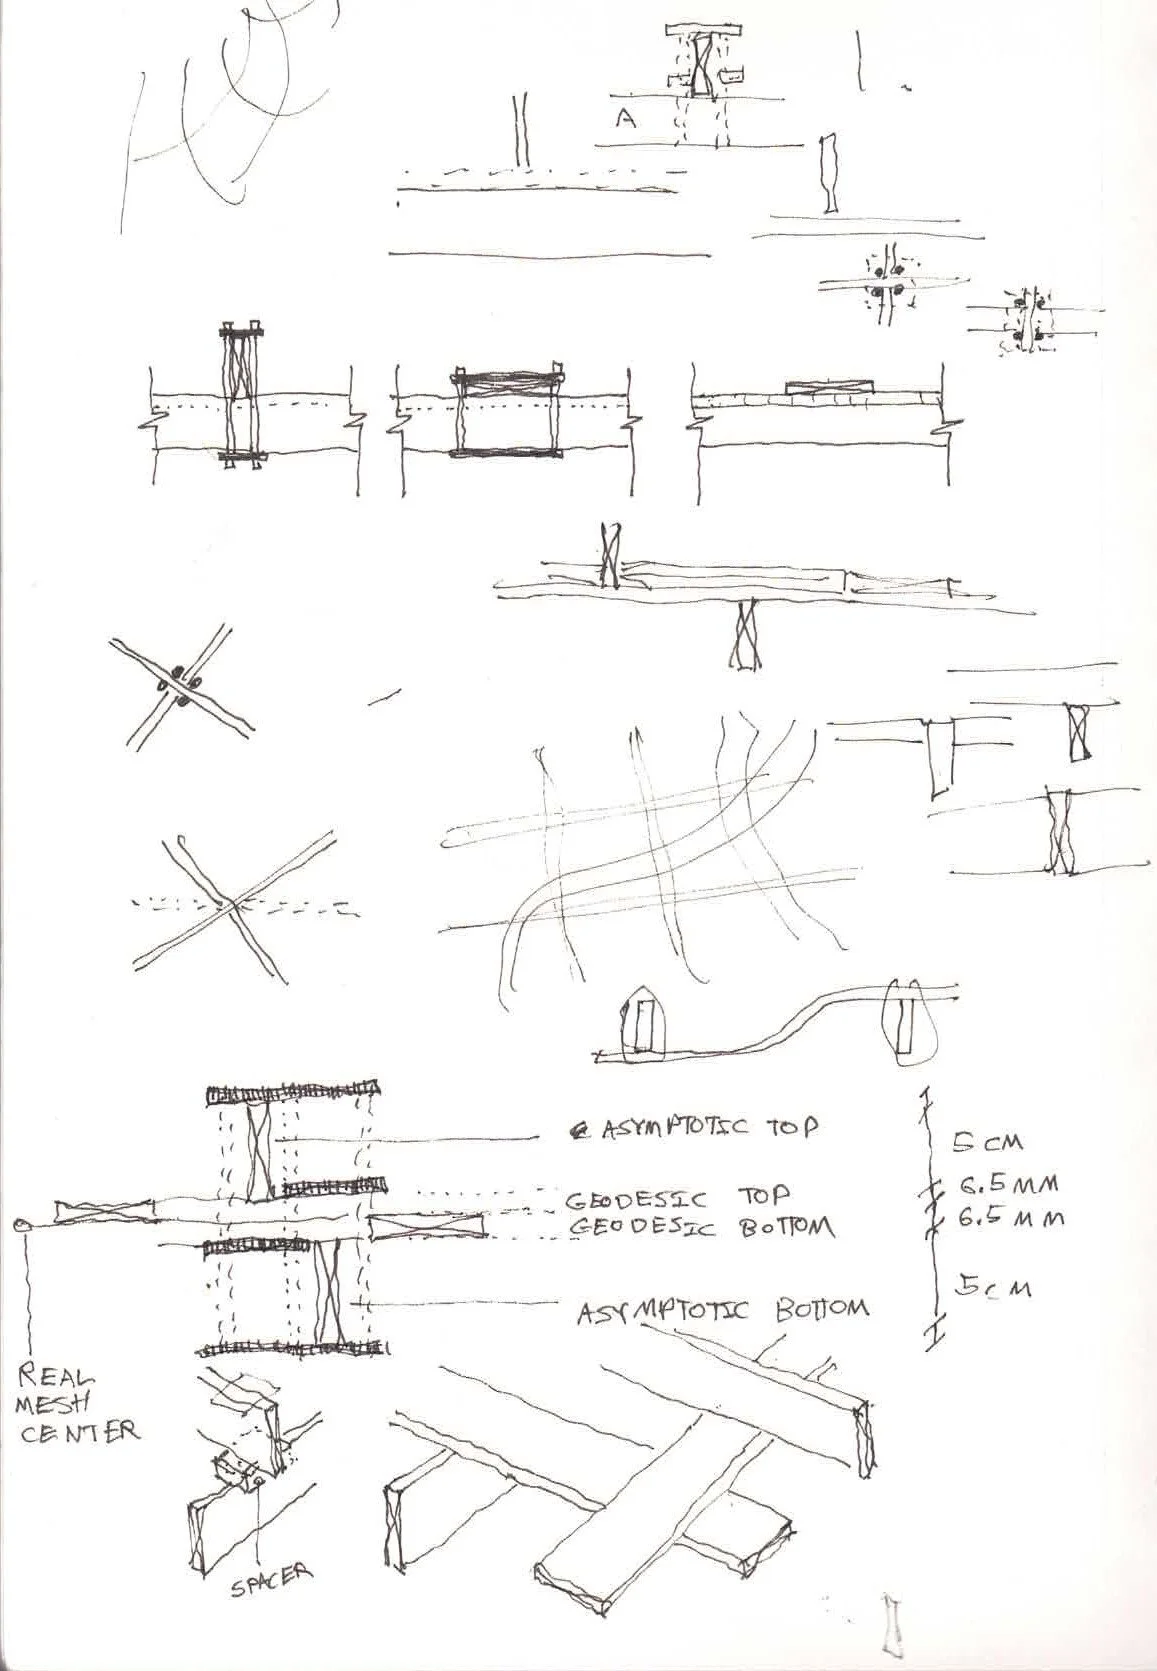 A
ASYMPTOTIC TOP
5 CM
GEODESIC TOP
6.5 MM
GEODESIC BOTTOM
6.5 MM
5 CM
ASYMPTOTIC BOTTOM
REAL
MESH
CENTER
SPACER